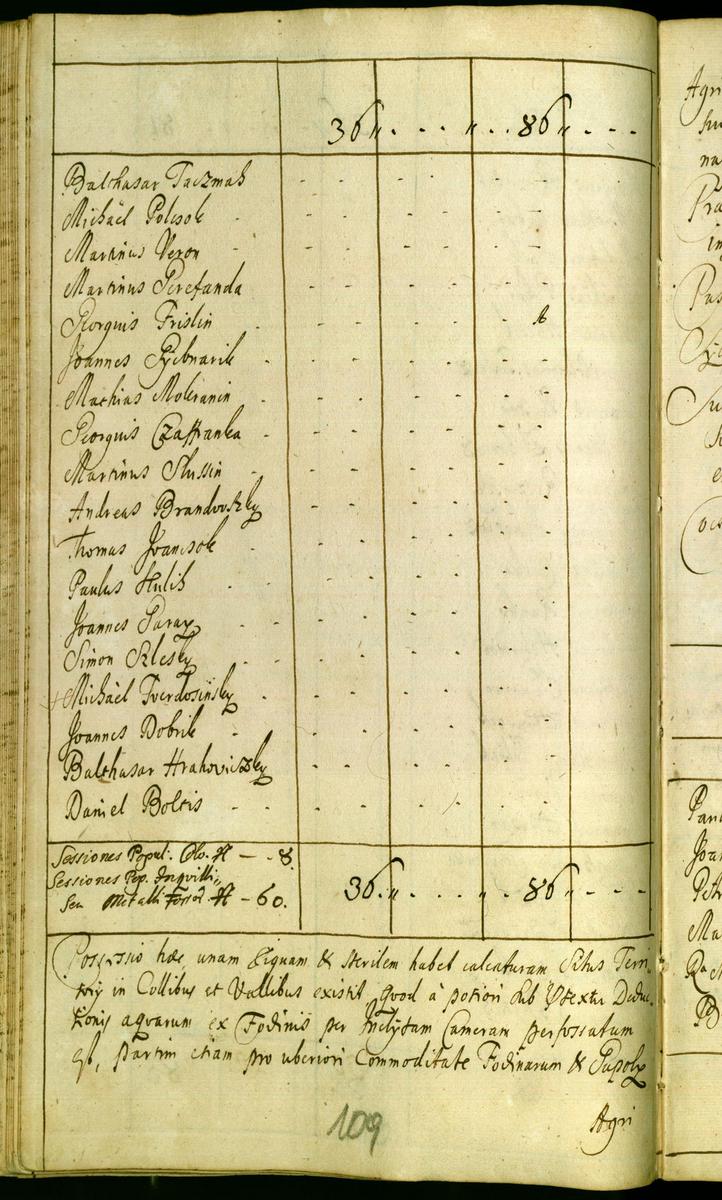 36 " - - - " - - 86 " - - -
Balthasar Taczmah
Michäel Polcsok
Martinus Veron
Martinus Perefanda
Georguis Frislin
Joannes Pyebnarik
Mathias Mokranin
Georguis Czaffranka
Martinus Slussin
Andreas Brandvoszky
Thomas Joancsok
Paulus Hulik
Joannes Paray
Simon Sklesky
Michäel Tverdosinsky
Joannes Dobrik
Balthasar Hrahoviczky
Daniel Boltis
Sessiones Popul. Col. H — - 8.
Sessiones Pop. Inquilli,
seu Metalli Fossor. H — 60.
36. " - - - " - - 86 " - - -
Possessio hæc unam exiguam & sterilem habet calcaturam Situs Terri
torij in Collibus et Vallibus existit, Quod à potiori sub Prætextu Deduc
tionis aquarum ex Fodinis per Inclytam Cameram perfossatum
est, partim etiam pro uberiori Commoditate Fodinarum &
Agri
109
Agri
na
Pra
in
Joan
Petr
Ma